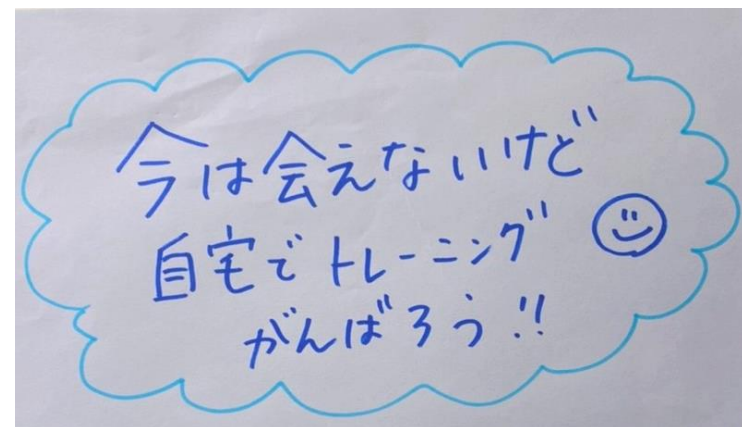 今は会えないけど
自宅でトレーニング
がんばろう!!